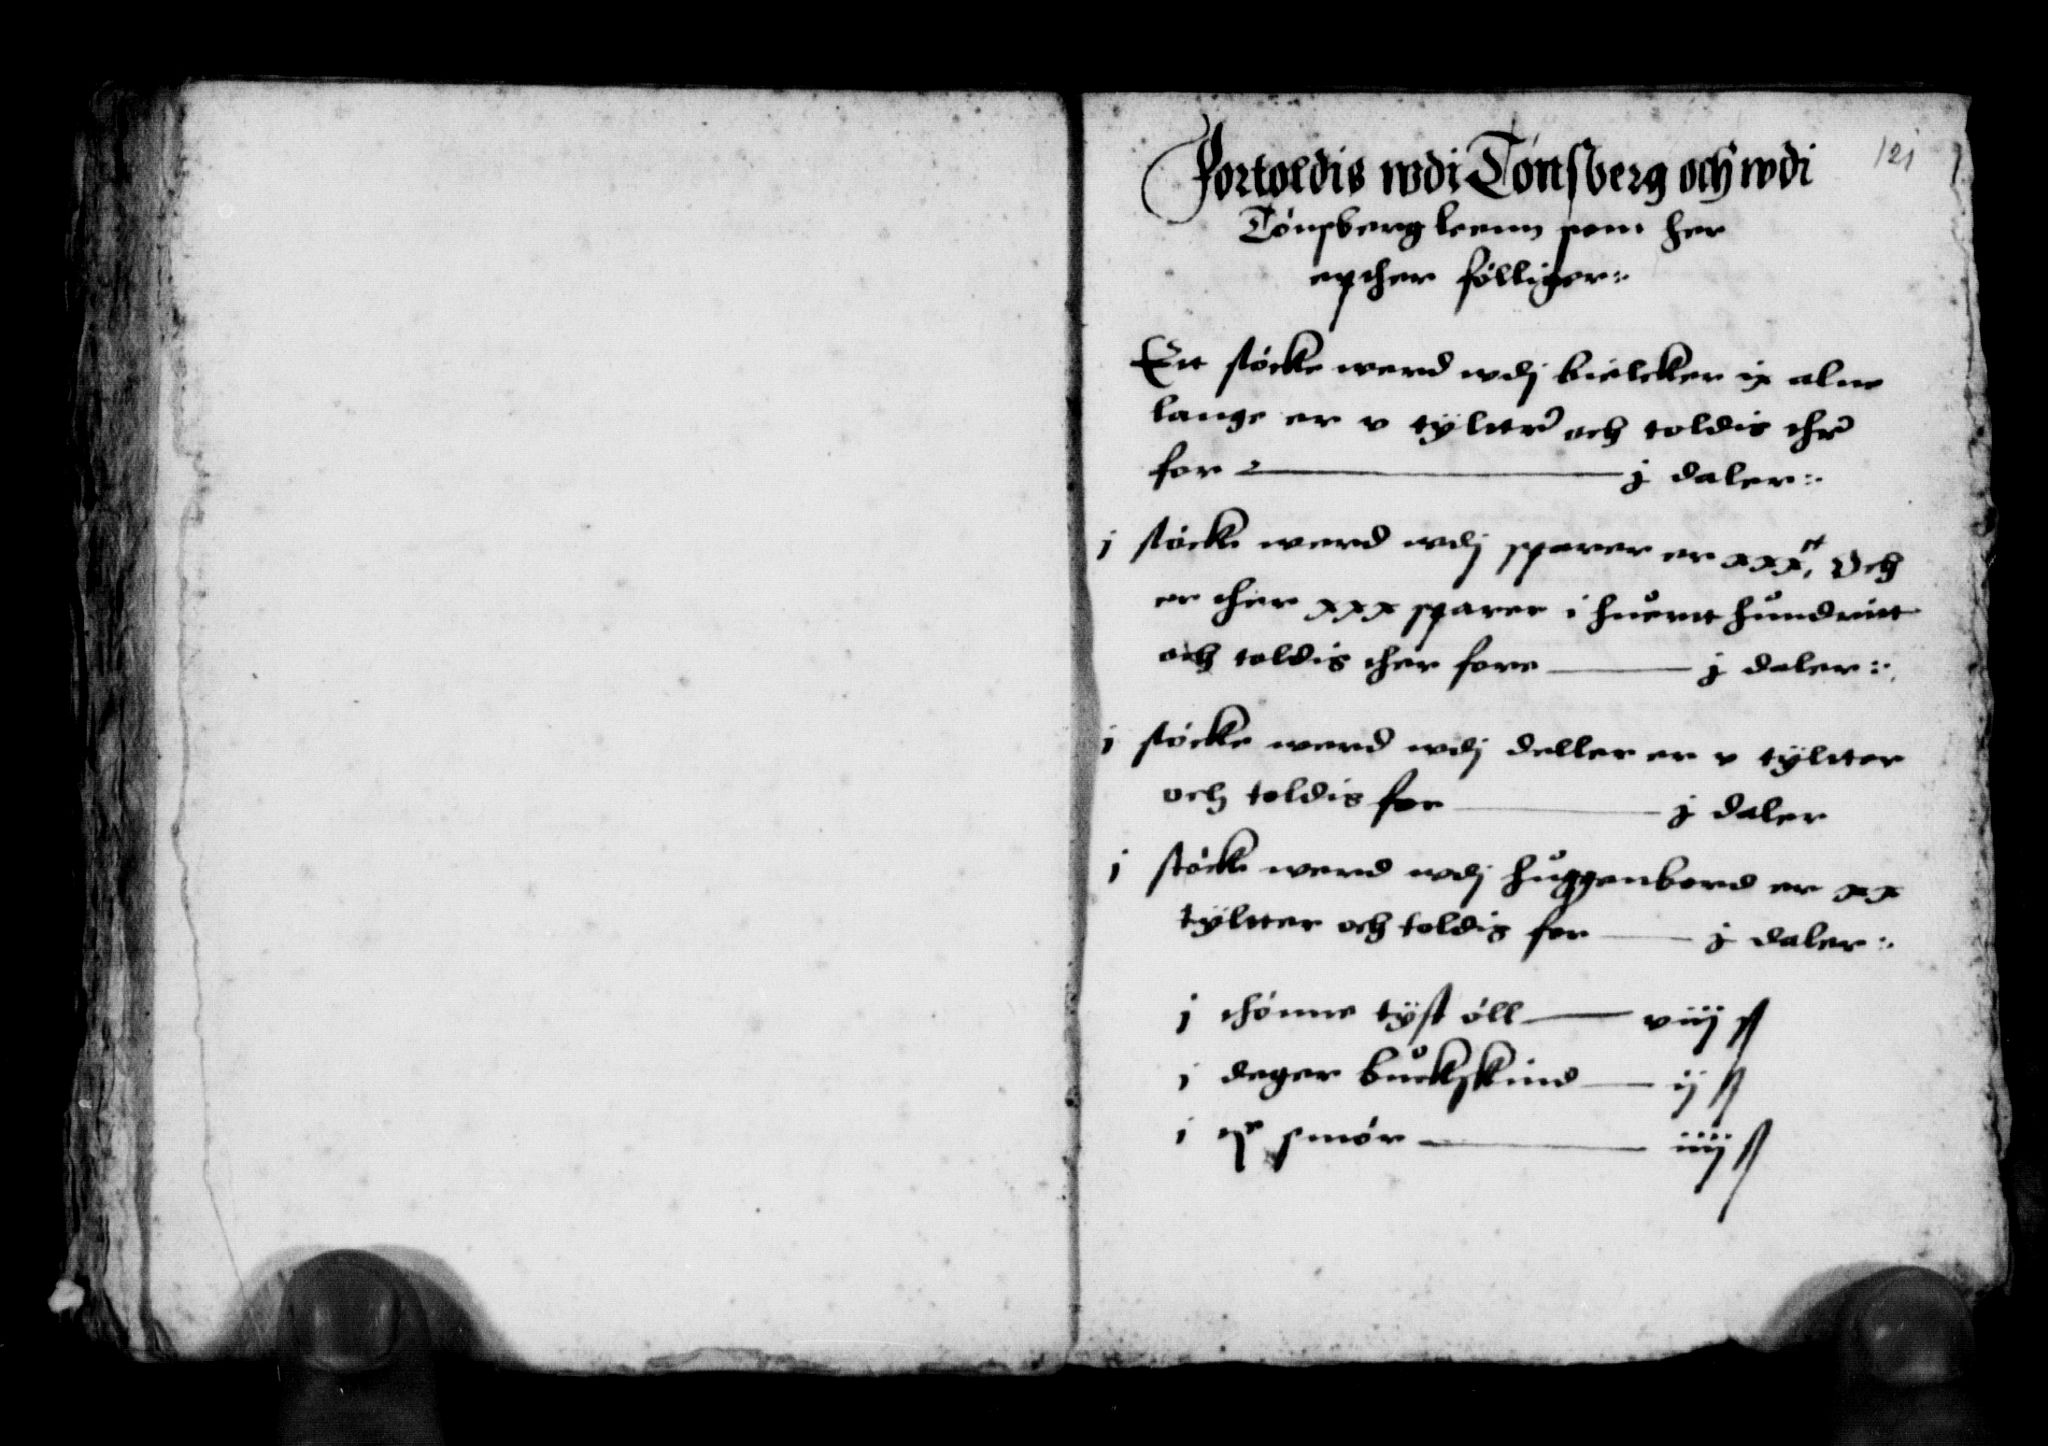 121
Fortoldis wdi Tønsberg och wdi
Tønsberg leenn som her
epther følliger:
Ett støcke werd wdj bielcker ix alne
lange er v tyltter och toldis ther
for — j daler:
j støcke werd wdj sparer er xxx, Och
er ther xxx sparer i huertt hundritt
och toldis ther fore — j daler:
j støcke werd wdj deller er v tyltter
och toldis for — j daler
j støcke werd wdj huggenbord er xx
tyltter och toldis for — j daler:
j thønne tyst øll — viij ß
j deger buckskind — ij ß
j smør — iiij ß